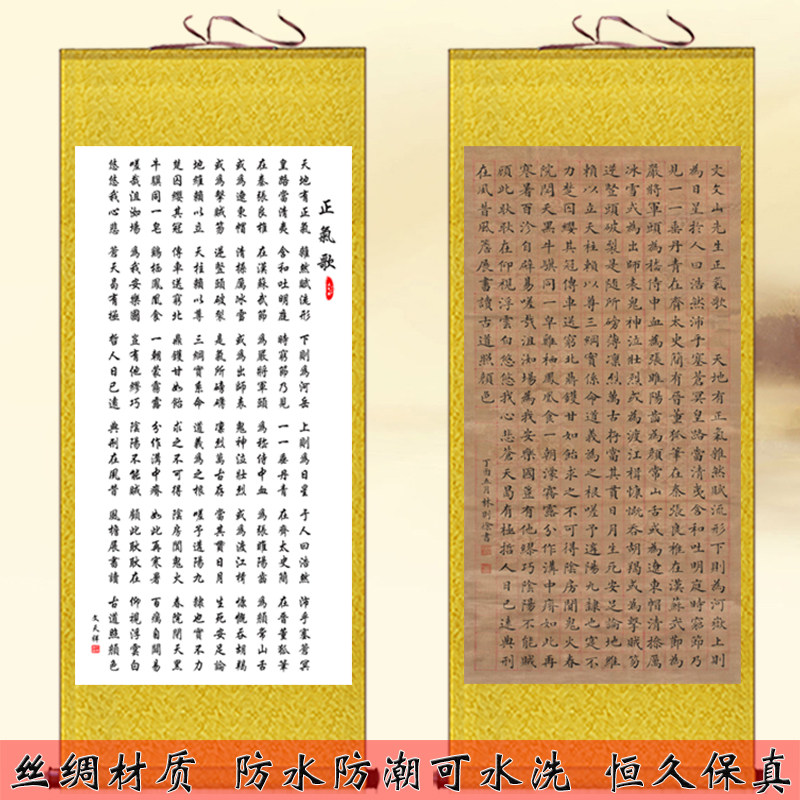 正氣歌
天地有正氣 雜然賦流形 下則為河嶽 上則為日星 于人曰浩然 沛乎塞蒼冥
皇路當清夷 含和吐明庭 時窮節乃見 一一垂丹青 在齊太史簡 在晉董狐筆
在秦張良椎 在漢蘇武節 為嚴將軍頭 為嵇侍中血 為張睢陽齒 為顏常山舌
或為遼東帽 清操厲冰雪 或為出師表 鬼神泣壯烈 或為渡江楫 慷慨吞胡羯
或為擊賊笏 逆豎頭破裂 是氣所磅礴 凜烈萬古存 當其貫日月 生死安足論
地維賴以立 天柱賴以尊 三綱實系命 道義為之根 嗟予遘陽九 隸也實不力
楚囚纓其冠 傳車送窮北 鼎鑊甘如飴 求之不可得 陰房闐鬼火 春院閉天黑
牛驥同一皂 雞棲鳳凰食 一朝蒙霧露 分作溝中瘠 如此再寒暑 百癘自闢易
嗟哉沮洳場 為我安樂國 豈有他繆巧 陰陽不能賊 顧此耿耿在 仰視浮雲白
悠悠我心悲 蒼天曷有極 哲人日已遠 典刑在夙昔 風檐展書讀 古道照顏色
文天祥
文文山先生正氣歌 天地有正氣雜然賦流形下則為河嶽上則
為日星於人曰浩然沛乎塞蒼冥皇路當清夷含和吐明庭時窮節乃
見一一垂丹青在齊太史簡有晉董狐筆在秦張良椎在漢蘇武節為
嚴將軍頭為嵇侍中血為張睢陽齒為顏常山舌或為遼東帽清操厲
冰雪或為出師表鬼神泣壯烈或為渡江楫慷慨吞胡羯或為擊賊笏
逆豎頭破裂是氣所磅礴凜烈萬古存當其貫日月生死安足論地維
賴以立天柱賴以尊三綱實係命道義為之根嗟予遘陽九隸之寔不
力楚囚纓其冠傳車送窮北鼎鑊甘如飴求之不可得陰房闐鬼火春
院閉天黑牛驥同一皁雞栖鳳凰食一朝濛霧露分作溝中瘠如此再
寒暑百沴自辟易嗟哉沮洳場為我安樂國豈有他繆巧陰陽不能賊
顧此耿耿在仰視浮雲白悠悠我心悲蒼天曷有極哲人日已遠典刑
在夙昔風簷展書讀古道照顏色
丁酉五月林則徐書
丝绸材质 防水防潮可水洗 恒久保真